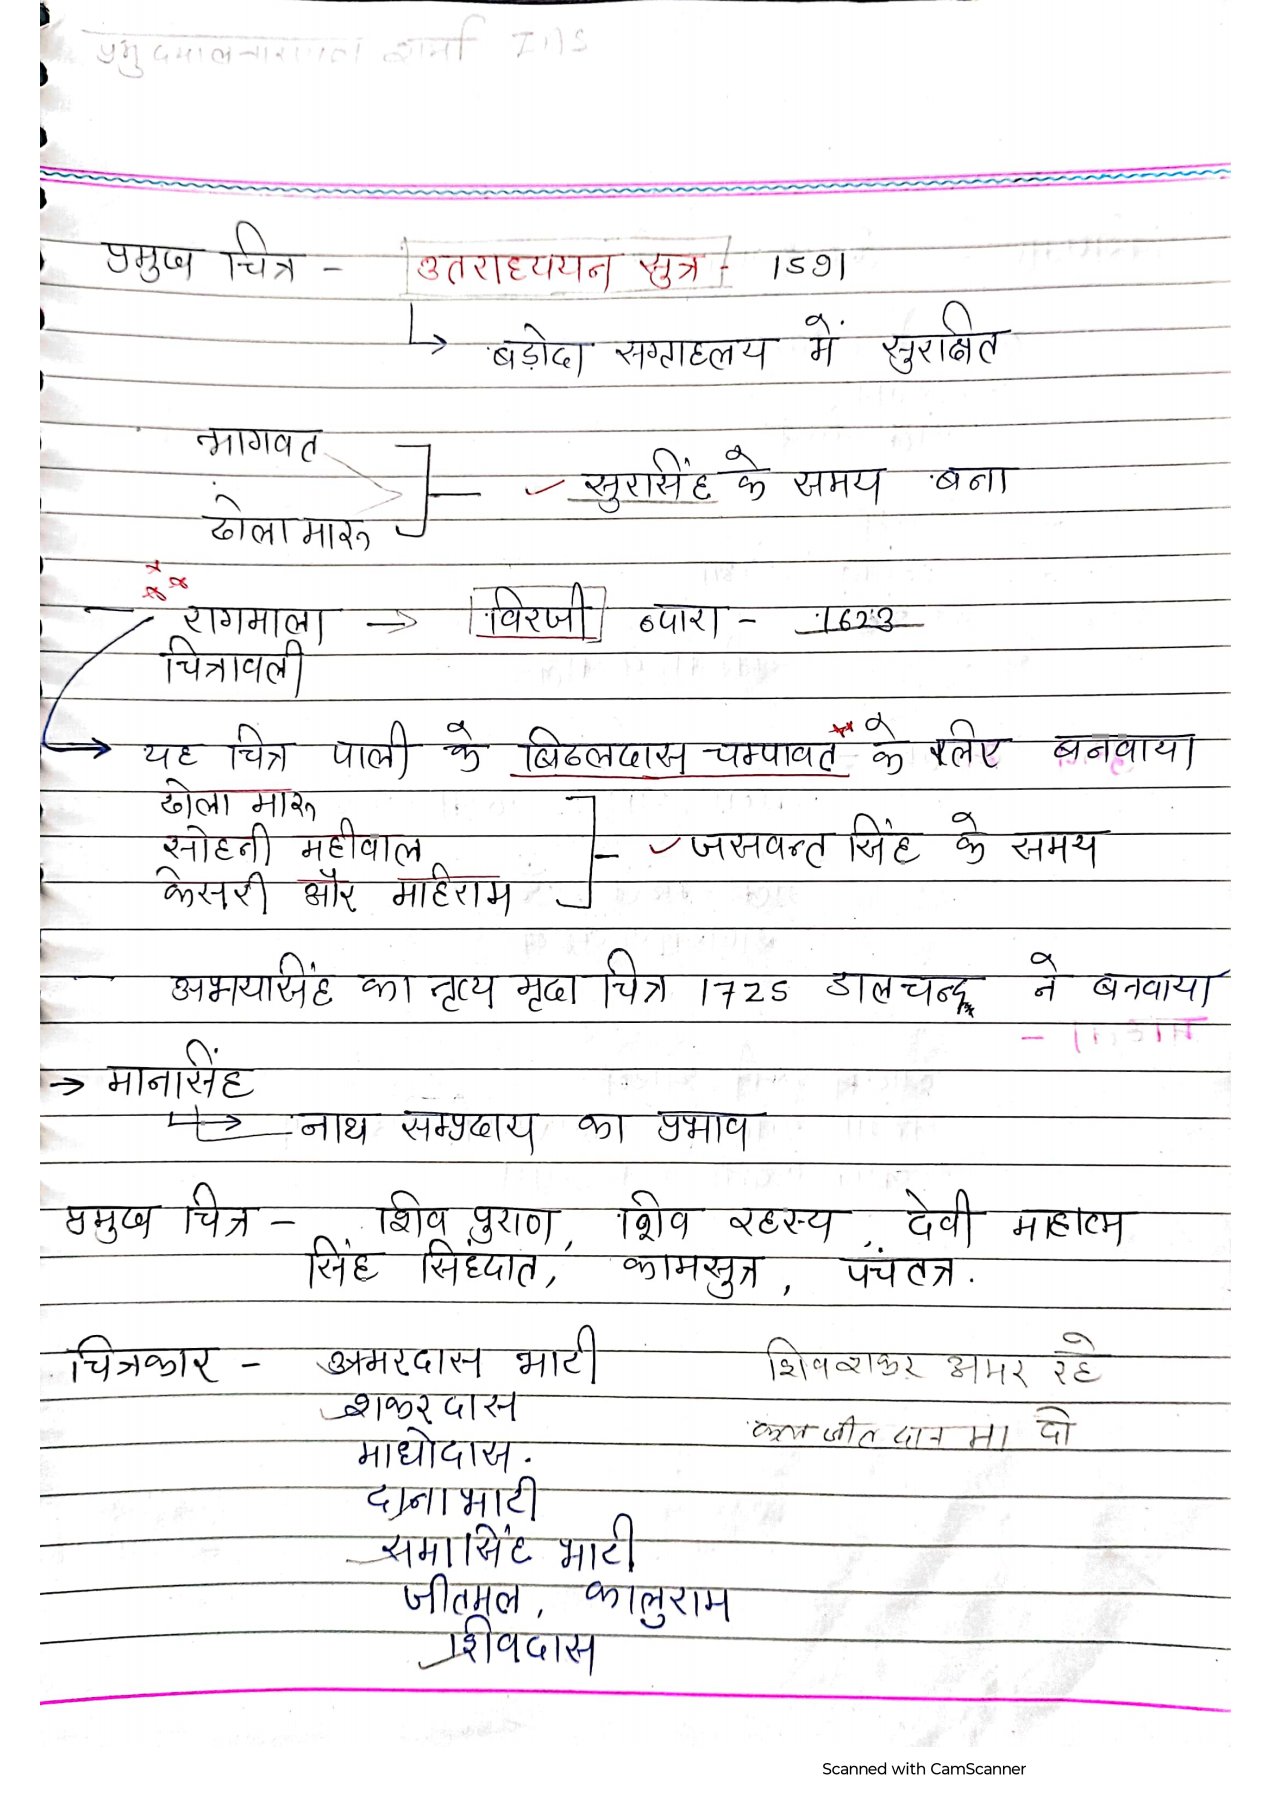 प्रमुख चित्र - उतराध्ययन सुत्र - 1591
↳ बड़ोदा सग्राहलय में सुरक्षित
भागवत
सुरसिंह के समय बना
ढोला मारू
रागमाला → विरजी द्वारा - 1623
चित्रावली
→ यह चित्र पाली के बिठलदास चम्पावत के लिए बनवाया
ढोला मारू
सोहनी महीवाल - जसवन्त सिंह के समय
केसरी और माहिराम
अभयसिंह का नृत्य मृदा चित्र 1725 डालचन्द्र ने बनवाया
→ मानसिंह
↳ नाथ सम्प्रदाय का प्रभाव
प्रमुख चित्र - शिव पुराण, शिव रहस्य, देवी माहात्म
सिंह सिंध्दात, कामसुत्र, पंचतत्र.
चित्रकार - अमरदास भाटी शिव शकर अमर रहे
शकर दास जीत दान मा दो
माधोदास.
दाना भाटी
समासिंह भाटी
जीतमल, कालुराम
शिवदास
Scanned with CamScanner